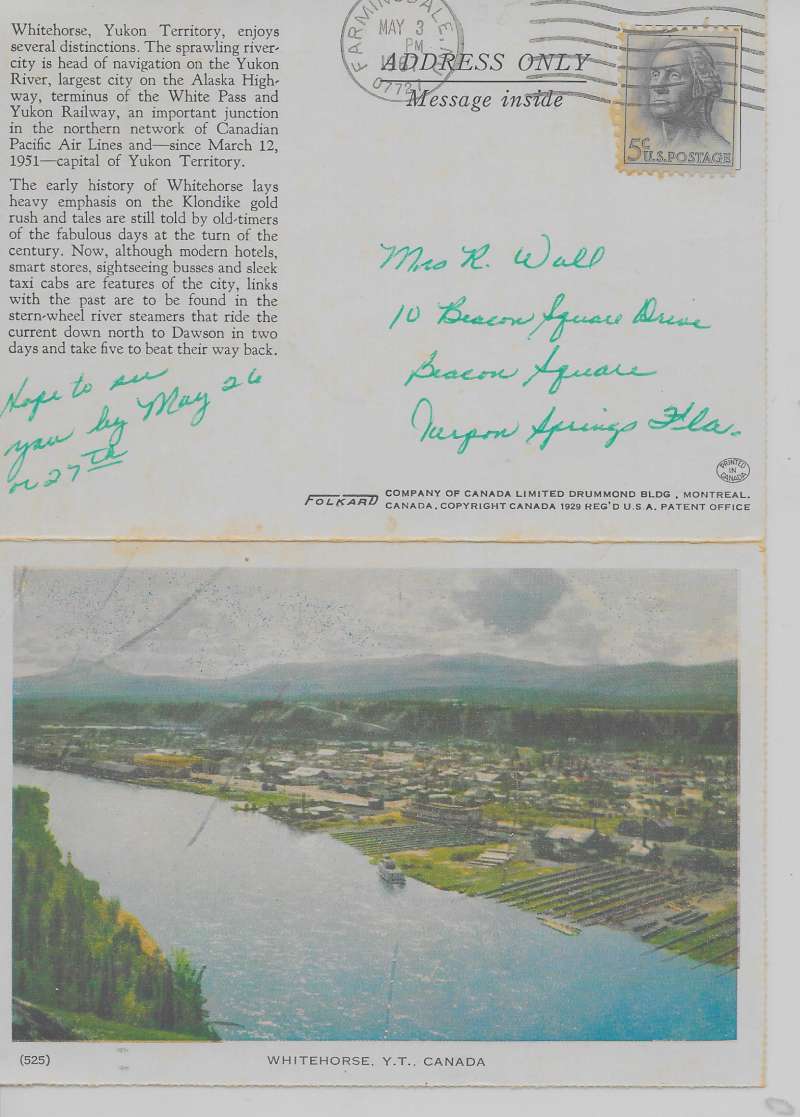 Whitehorse, Yukon Territory, enjoys
several distinctions. The sprawling river-
city is head of navigation on the Yukon
River, largest city on the Alaska High-
way, terminus of the White Pass and
Yukon Railway, an important junction
in the northern network of Canadian
Pacific Air Lines and—since March 12,
1951—capital of Yukon Territory.
The early history of Whitehorse lays
heavy emphasis on the Klondike gold
rush and tales are still told by old-timers
of the fabulous days at the turn of the
century. Now, although modern hotels,
smart stores, sightseeing busses and sleek
taxi cabs are features of the city, links
with the past are to be found in the
stern-wheel river steamers that ride the
current down north to Dawson in two
days and take five to beat their way back.
Hope to see
you by May 26
or 27th
FARMINGDALE, N.J.
MAY 3
PM
07727
ADDRESS ONLY
Message inside
5c
U.S. POSTAGE
Mrs R. Wall
10 Beacon Square Drive
Beacon Square
Tarpon Springs Fla.
PRINTED
IN
CANADA
FOLKARD COMPANY OF CANADA LIMITED DRUMMOND BLDG., MONTREAL,
CANADA, COPYRIGHT CANADA 1929 REG'D U.S.A. PATENT OFFICE
(525)
WHITEHORSE, Y.T., CANADA